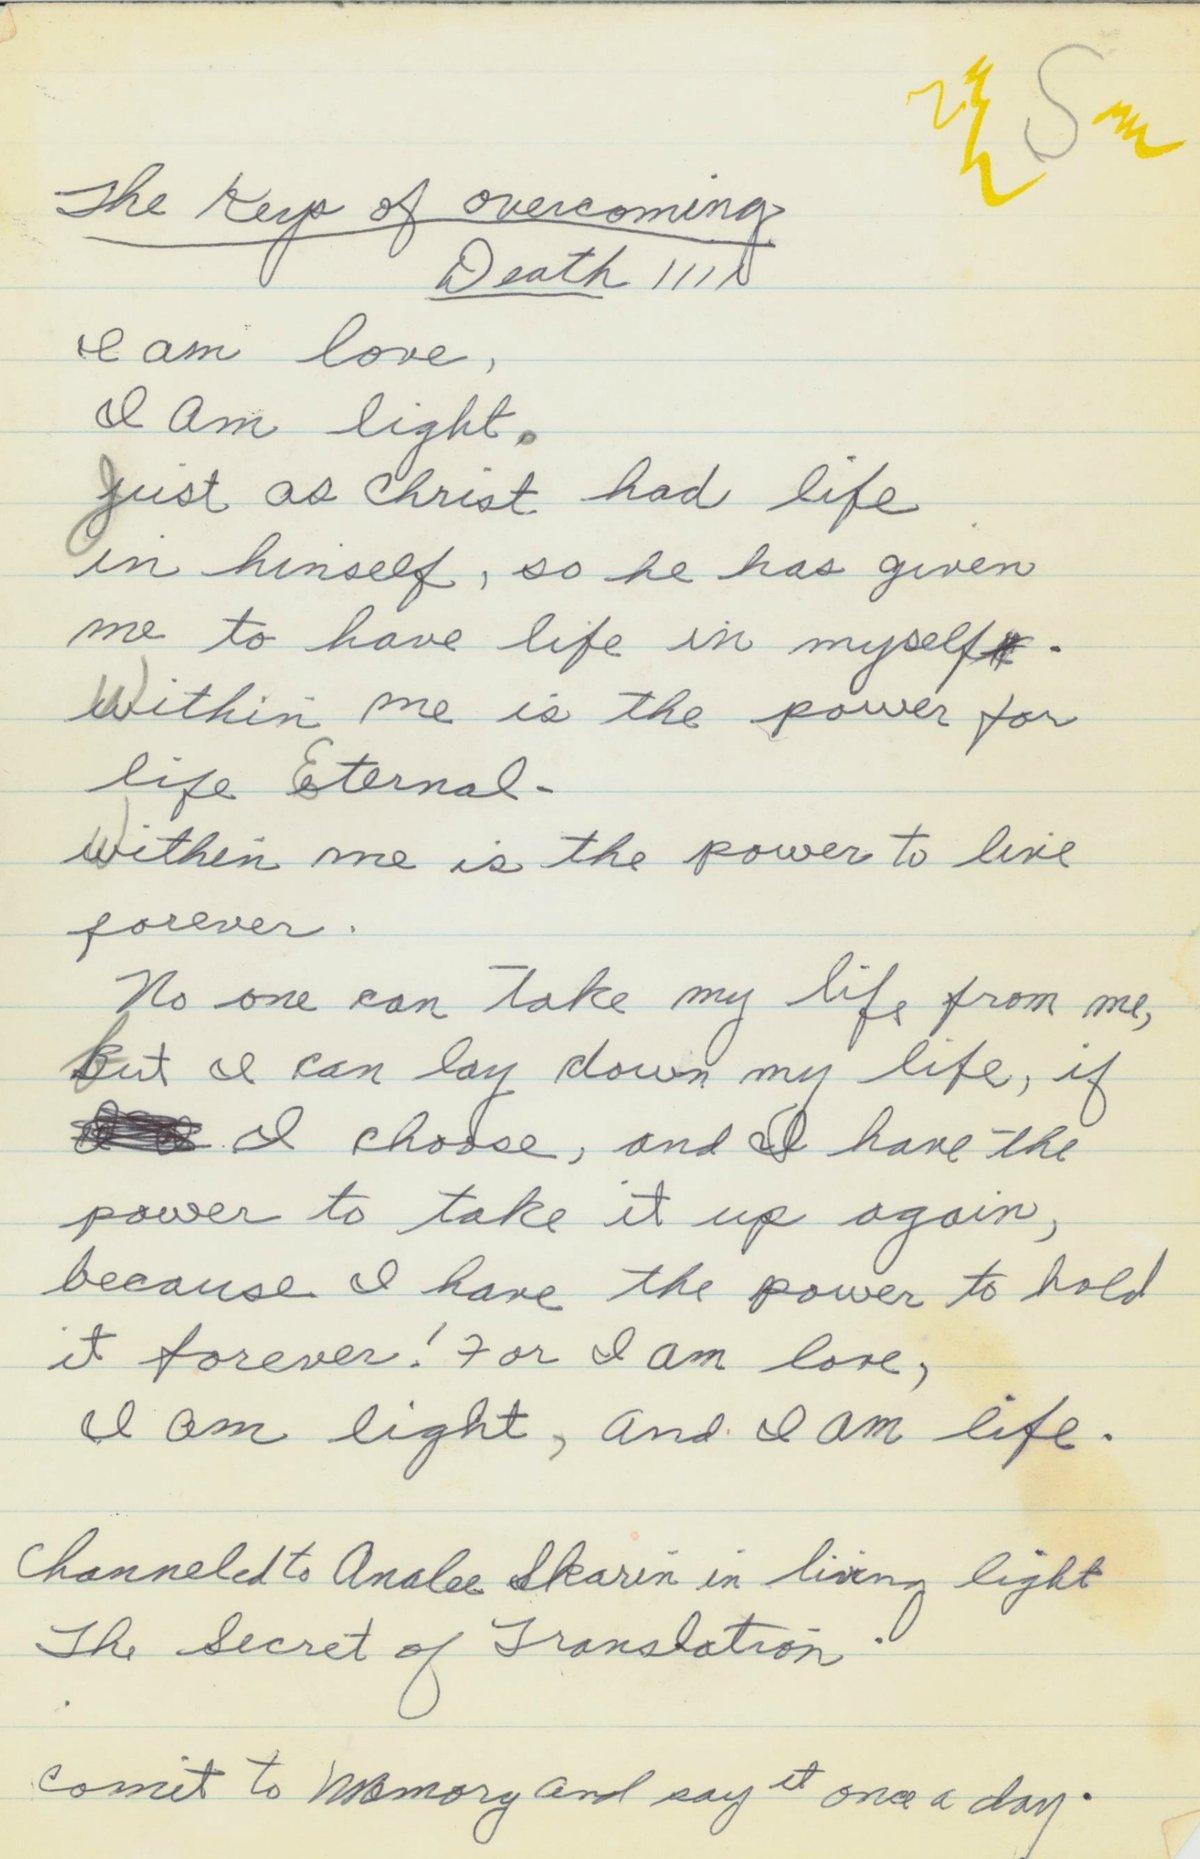 S
The Keys of overcoming
Death !!!!
I am love,
I Am light.
Just as Christ had life
in hinself, so he has given
me to have life in myself.
Within me is the power for
life Eternal-
Within me is the power to live
forever.
No one can take my life from me,
but I can lay down my life, if
I choose, and I have the
power to take it up again,
because I have the power to hold
it forever! For I am love,
I am light, and I am life.
Channeled to Analee Skarin in living light
The Secret of Translation.
comit to Memory and say it once a day.